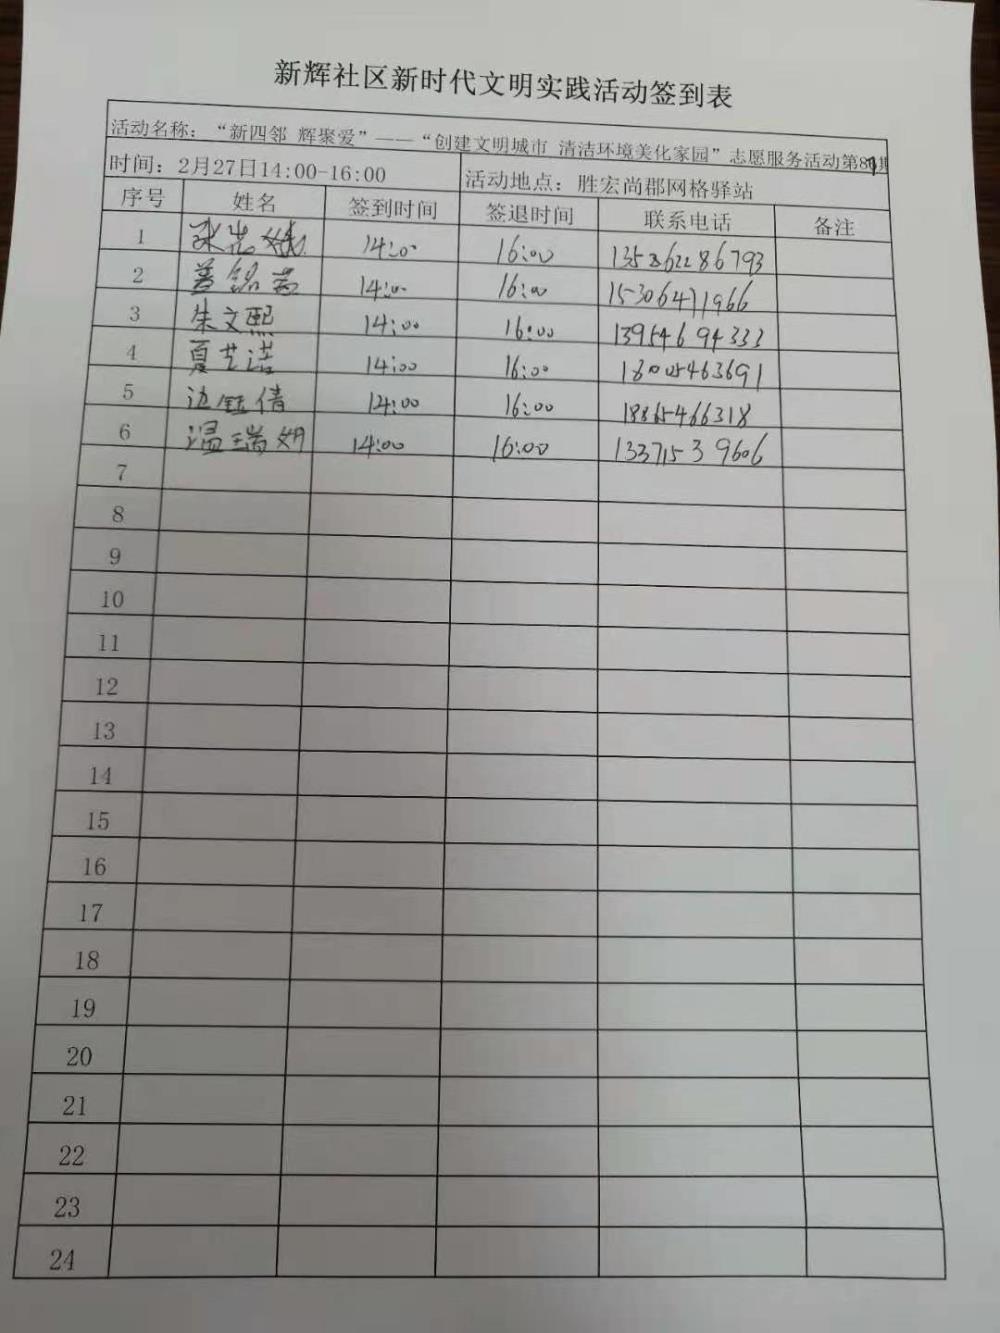 新辉社区新时代文明实践活动签到表
活动名称：“新四邻 辉聚爱”——“创建文明城市 清洁环境美化家园”志愿服务活动第8期
时间：2月27日14:00-16:00 活动地点：胜宏尚郡网格驿站
序号 姓名 签到时间 签退时间 联系电话 备注
1 14:00 16:00
2 14:00 16:00 15306471966
3 朱文熙 14:00 16:00 13954694333
4 夏艺诺 14:00 16:00 18005463691
5 边钰倩 14:00 16:00 18865466318
6 温瑞妍 14:00 16:00 13371539606
7
8
9
10
11
12
13
14
15
16
17
18
19
20
21
22
23
24